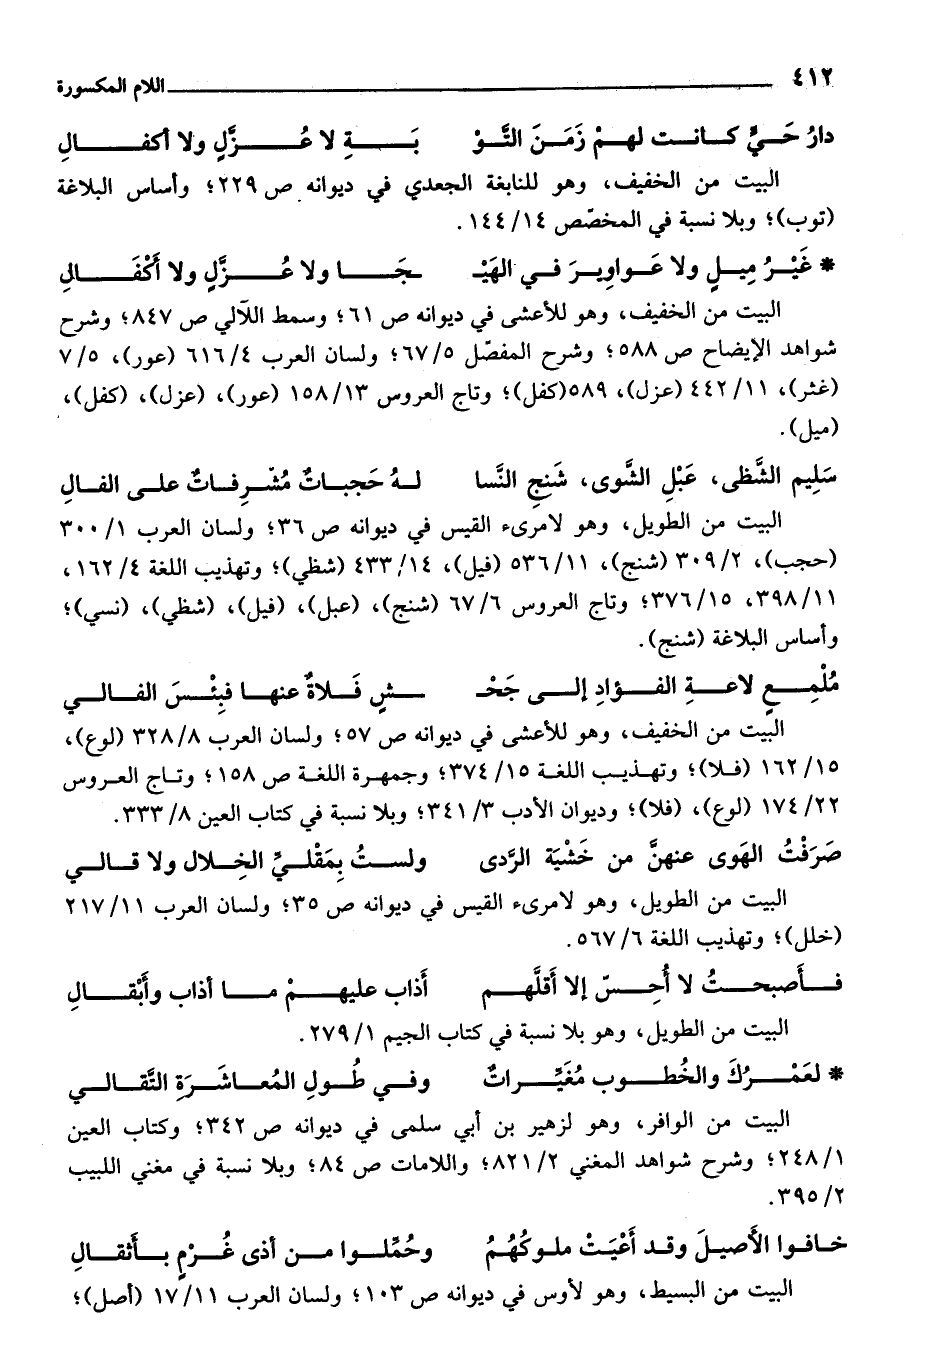 ٤١٢ اللام المكسورة
دارُ حَيٍّ كانت لهمْ زَمَنَ التَّوْ بَةِ لا عُزَّلٍ ولا أكفالِ
البيت من الخفيف، وهو للنابغة الجعدي في ديوانه ص ٢٢٩؛ وأساس البلاغة
(توب)؛ وبلا نسبة في المخصّص ١٤/ ١٤٤.
* غَيْرُ مِيلٍ ولا عَواوِيرَ في الهَيْـ ـجَا ولا عُزَّلٍ ولا أَكْفَالِ
البيت من الخفيف، وهو للأعشى في ديوانه ص ٦١؛ وسمط اللآلي ص ٨٤٧؛ وشرح
شواهد الإيضاح ص ٥٨٨؛ وشرح المفصّل ٥/ ٦٧؛ ولسان العرب ٤/ ٦١٦ (عور)، ٥/ ٧
(غثر)، ١١/ ٤٤٢ (عزل)، ٥٨٩(كفل)؛ وتاج العروس ١٣/ ١٥٨ (عور)، (عزل)، (كفل)،
(ميل).
سَلِيم الشَّظى، عَبْلِ الشَّوى، شَنجِ النَّسا لهُ حَجباتٌ مُشْرِفاتٌ على الفالِ
البيت من الطويل، وهو لامرىء القيس في ديوانه ص ٣٦؛ ولسان العرب ١/ ٣٠٠
(حجب)، ٢/ ٣٠٩ (شنج)، ١١/ ٥٣٦ (فيل)، ١٤/ ٤٣٣ (شظي)؛ وتهذيب اللغة ٤/ ١٦٢،
١١/ ٣٩٨، ١٥/ ٣٧٦؛ وتاج العروس ٦/ ٦٧ (شنج)، (عبل)، (فيل)، (شظي)، (نسي)؛
وأساس البلاغة (شنج).
مُلْمِعٍ لاعةِ الفؤادِ إلى جَحْـ ـشٍ فَلاةٌ عنها فبِئْسَ الفالي
البيت من الخفيف، وهو للأعشى في ديوانه ص ٥٧؛ ولسان العرب ٨/ ٣٢٨ (لوع)،
١٥/ ١٦٢ (فلا)؛ وتهذيب اللغة ١٥/ ٣٧٤؛ وجمهرة اللغة ص ١٥٨؛ وتاج العروس
٢٢/ ١٧٤ (لوع)، (فلا)؛ وديوان الأدب ٣/ ٣٤١؛ وبلا نسبة في كتاب العين ٨/ ٣٣٣.
صَرَفْتُ الهَوى عنهنَّ من خَشْيَة الرَّدى ولستُ بِمَقْليِّ الخِلال ولا قالي
البيت من الطويل، وهو لامرىء القيس في ديوانه ص ٣٥؛ ولسان العرب ١١/ ٢١٧
(خلل)؛ وتهذيب اللغة ٦/ ٥٦٧.
فأصبحتُ لا أُحِسّ إلا أقلَّهم أَذاب عليهمْ ما أذاب وأَبْقالِ
البيت من الطويل، وهو بلا نسبة في كتاب الجيم ١/ ٢٧٩.
* لعَمْرُكَ والخُطوب مُغَيِّراتٌ وفي طُولِ المُعاشَرَةِ التَّقالي
البيت من الوافر، وهو لزهير بن أبي سلمى في ديوانه ص ٣٤٢؛ وكتاب العين
١/ ٢٤٨؛ وشرح شواهد المغني ٢/ ٨٢١؛ واللامات ص ٨٤؛ وبلا نسبة في مغني اللبيب
٢/ ٣٩٥.
خافوا الأَصيلَ وقد أَعْيَتْ ملوكُهُمُ وحُمِّلوا من أذى غُرْمٍ بأثقالِ
البيت من البسيط، وهو لأوس في ديوانه ص ١٠٣؛ ولسان العرب ١١/ ١٧ (أصل)؛